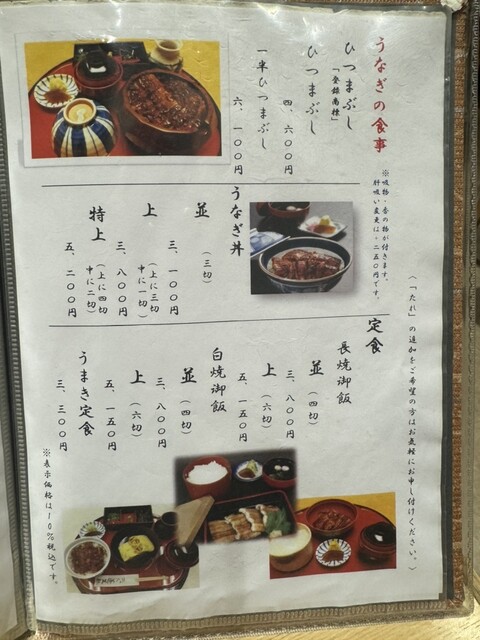 うなぎの食事
ひつまぶし
「登録商標」
ひつまぶし
四、六〇〇円
一半ひつまぶし
六、一〇〇円
※吸物・香の物が付きます。
肝吸い変更は+二五〇円です。
うなぎ丼
並
(三切)
三、一〇〇円
上
(上に三切
中に一切)
三、八〇〇円
特上
(上に四切
中に二切)
五、二〇〇円
(「たれ」の追加をご希望の方はお気軽にお申し付けください。)
定食
長焼御飯
並(四切)
三、八〇〇円
上(六切)
五、一五〇円
白焼御飯
並(四切)
三、八〇〇円
上(六切)
五、一五〇円
うまき定食
三、三〇〇円
※表示価格は10%税込です。